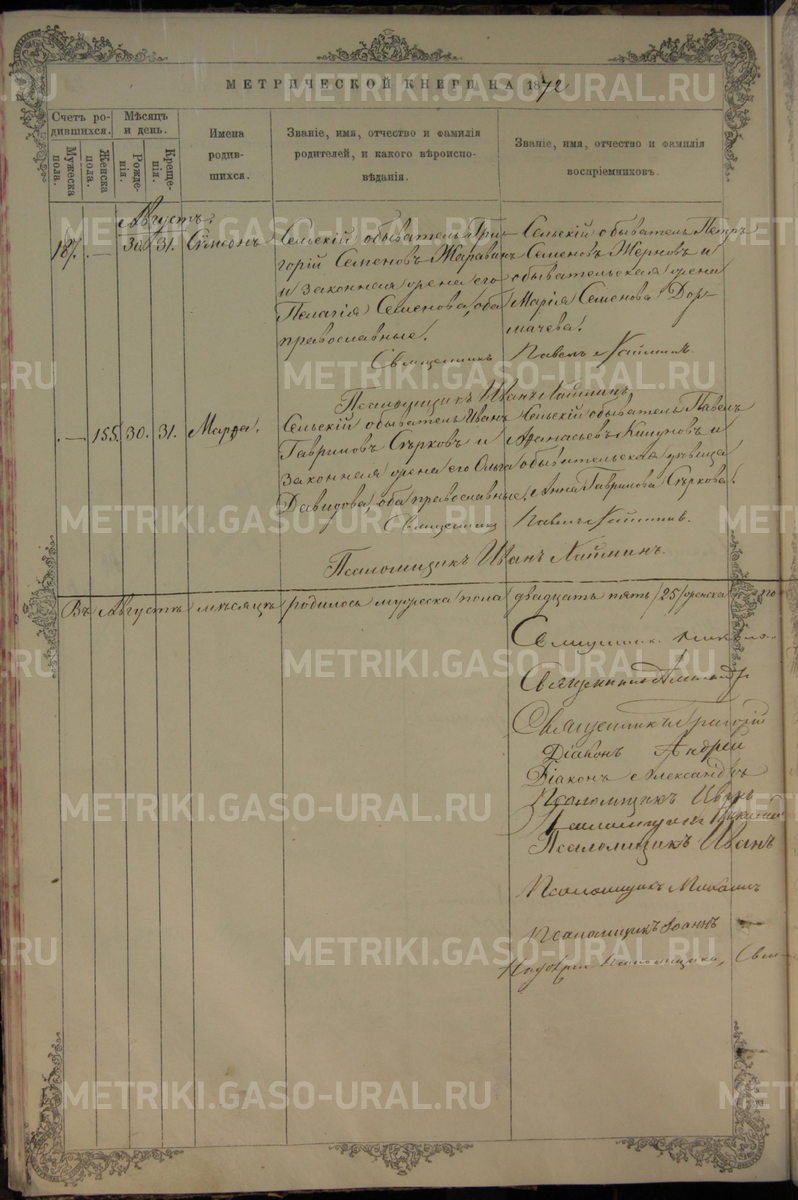 МЕТРИЧЕСКОЙ КНИГИ НА 1872
Счетъ ро-
дившихся.
Мужеска
пола.
Женска
пола.
Мѣсяцъ
и день.
Рожде-
нія.
Креще-
нія.
Имена
родив-
шихся.
Званіе, имя, отчество и фамилія
родителей, и какого вѣроиспо-
вѣданія.
Званіе, имя, отчество и фамилія
воспріемниковъ.
Августъ.
187. — 30. 31. Сѵмеонъ
Сельскій обыватель Гри-
горій Семеновъ Жаравинъ
и законная жена его
Пелагія Семенова, оба
православные.
Сельскій обыватель Петръ
Семеновъ Жерновъ и
обывательская жена
Марія Семенова Дор-
мачева.
Священникъ Павелъ
Псаломщикъ Иванъ
— 155. 30. 31. Марѳа.
Сельскій обыватель Иванъ
Гавриловъ Сѣрковъ и
законная жена его Ольга
Давидова, оба православные.
Сельскій обыватель Павелъ
Аѳанасьевъ и
обывательская дѣвица
Анна Гаврилова Сѣркова.
Священникъ Павелъ
Псаломщикъ Иванъ
Въ Августѣ мѣсяцѣ родилось мужеска пола двадцать пять /25/ женска
Священникъ
Священникъ
Священникъ Григорій
Діаконъ Андрей
Діаконъ Александръ
Псаломщикъ
Псаломщикъ
Псаломщикъ Иванъ
Псаломщикъ Михаилъ
Псаломщикъ Іоаннъ
METRIKI.GASO-URAL.RU